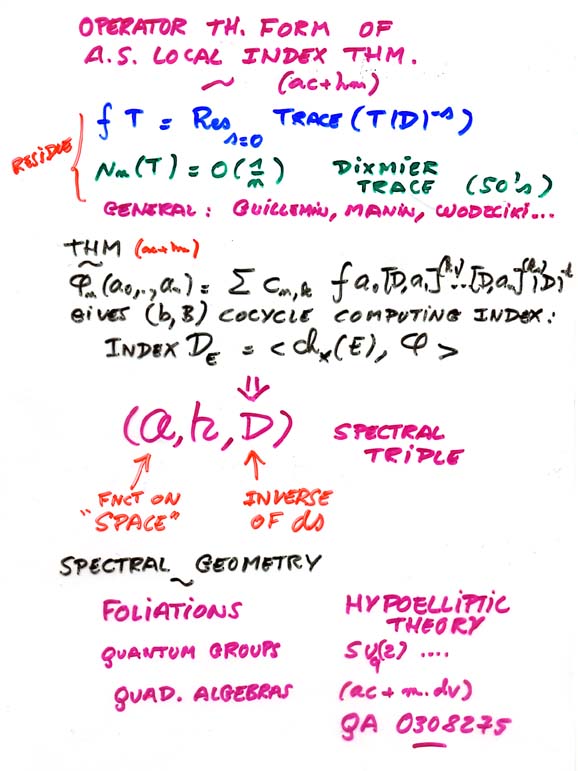 OPERATOR TH. FORM OF
A.S. LOCAL INDEX THM.
(ac+hm)
RESIDUE
⨍ T = Res_{s=0} TRACE (T|D|^{-s})
μ_n(T) = O(1/n) DIXMIER TRACE (50's)
GENERAL: GUILLEMIN, MANIN, WODZCIKI...
THM (ac+hm)
φ_n(a_0,..,a_n) = Σ c_{n,k} ⨍ a_0 [D,a_1]^{(k_1)}...[D,a_n]^{(k_n)} |D|^{-t}
GIVES (b,B) COCYCLE COMPUTING INDEX:
INDEX D_E = < ch_*(E), φ >
⇓
(a, h, D) SPECTRAL TRIPLE
FNCT ON "SPACE"
INVERSE OF ds
SPECTRAL GEOMETRY
FOLIATIONS HYPOELLIPTIC THEORY
QUANTUM GROUPS SU_q(2) ....
QUAD. ALGEBRAS (ac + m.dv)
QA 0308275